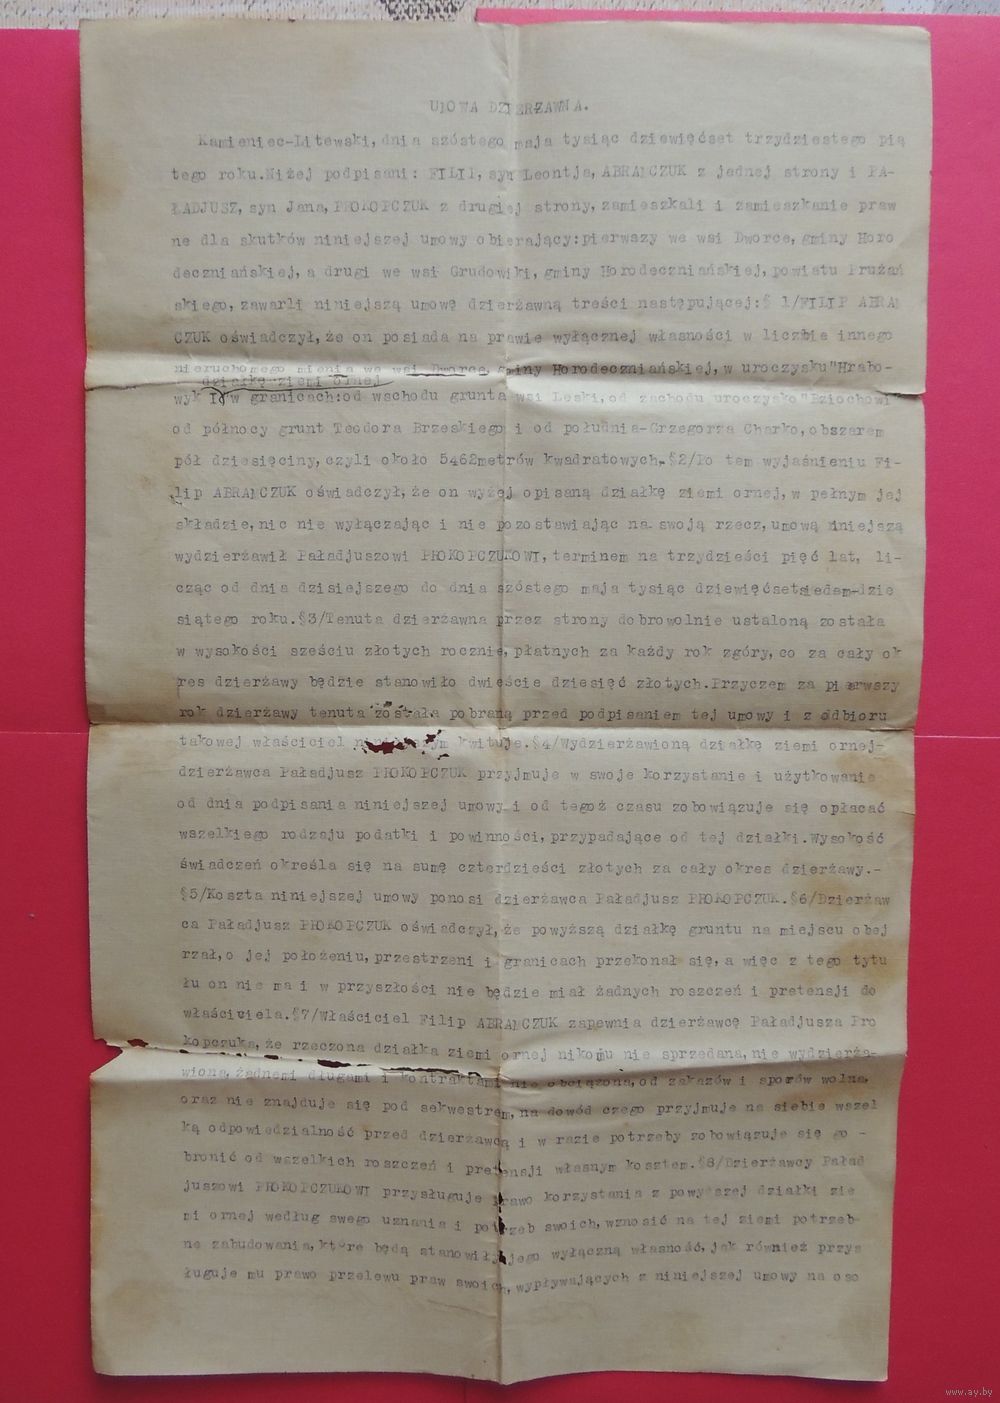 UMOWA DZIERŻAWNA.
Kamieniec-Litewski, dnia szóstego maja tysiąc dziewięćset trzydziestego pią
tego roku.Niżej podpisani: FILIP, syn Leontja, ABRAMCZUK z jednej strony i PA-
ŁADJUSZ, syn Jana, PROKOPCZUK z drugiej strony, zamieszkali i zamieszkanie praw
ne dla skutków niniejszej umowy obierający:pierwszy we wsi Dworce, gminy Horo
deczniańskiej, a drugi we wsi Grudowiki, gminy Horodeczniańskiej, powiatu Prużań
skiego, zawarli niniejszą umowę dzierżawną treści następującej:§ 1/FILIP ABRAM
CZUK oświadczył, że on posiada na prawie wyłącznej własności w liczbie innego
nieruchomego mienia we wsi Dworce, gminy Horodeczniańskiej, w uroczysku"Hrabo-
działkę ziemi ornej
wyk I" w granicach:od wschodu grunta wsi Leski, od zachodu uroczysko
od północy grunt Teodora Brzeskiego i od południa-Grzegorza Charko, obszarem
pół dziesięciny, czyli około 5462metrów kwadratowych.§2/Po tem wyjaśnieniu Fi-
lip ABRAMCZUK oświadczył, że on wyżej opisaną działkę ziemi ornej, w pełnym jej
składzie, nic nie wyłączając i nie pozostawiając na swoją rzecz, umową niniejszą
wydzierżawił Paładjuszowi PROKOPCZUKOWI, terminem na trzydzieści pięć lat, li-
cząc od dnia dzisiejszego do dnia szóstego maja tysiąc dziewięćsetsiedem-dzie
siątego roku.§3/Tenuta dzierżawna przez strony dobrowolnie ustaloną została
w wysokości sześciu złotych rocznie, płatnych za każdy rok zgóry, co za cały ok
res dzierżawy będzie stanowiło dwieście dziesięć złotych.Przyczem za pierwszy
rok dzierżawy tenuta została pobraną przed podpisaniem tej umowy i z odbioru
takowej właściciel kwituje.§4/Wydzierżawioną działkę ziemi ornej-
dzierżawca Paładjusz PROKOPCZUK przyjmuje w swoje korzystanie i użytkowanie
od dnia podpisania niniejszej umowy i od tegoż czasu zobowiązuje się opłacać
wszelkiego rodzaju podatki i powinności, przypadające od tej działki.Wysokość
świadczeń określa się na sumę czterdzieści złotych za cały okres dzierżawy.-
§5/Koszta niniejszej umowy ponosi dzierżawca Paładjusz PROKOPCZUK.§6/Dzierżaw
ca Paładjusz PROKOPCZUK oświadczył, że powyższą działkę gruntu na miejscu obej
rzał, o jej położeniu, przestrzeni i granicach przekonał się, a więc z tego tytu
łu on nie ma i w przyszłości nie będzie miał żadnych roszczeń i pretensji do
właściciela.§7/Właściciel Filip ABRAMCZUK zapewnia dzierżawcę Paładjusza Pro
kopczuka, że rzeczona działka ziemi ornej nikomu nie sprzedana, nie wydzierża-
wiona, żadnemi długami i kontraktami nie obciążona, od zakazów i sporów wolna,
oraz nie znajduje się pod sekwestrem, na dowód czego przyjmuje na siebie wszel
ką odpowiedzialność przed dzierżawcą i w razie potrzeby zobowiązuje się go -
bronić od wszelkich roszczeń i pretensji własnym kosztem.§8/Dzierżawcy Paład
juszowi PROKOPCZUKOWI przysługuje prawo korzystania z powyższej działki zie
mi ornej według swego uznania i potrzeb swoich, wznosić na tej ziemi potrzeb-
ne zabudowania, które będą stanowiły jego wyłączną własność, jak również przys
ługuje mu prawo przelewu praw swoich, wypływających z niniejszej umowy na oso
www.ay.by